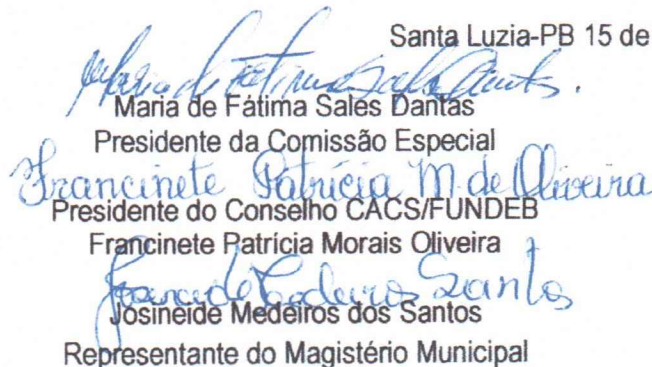 Santa Luzia-PB 15 de
Maria de Fátima Sales Dantas.
Maria de Fátima Sales Dantas
Presidente da Comissão Especial
Francinete Patrícia M. de Oliveira
Presidente do Conselho CACS/FUNDEB
Francinete Patrícia Morais Oliveira
Santos
Josineide Medeiros dos Santos
Representante do Magistério Municipal